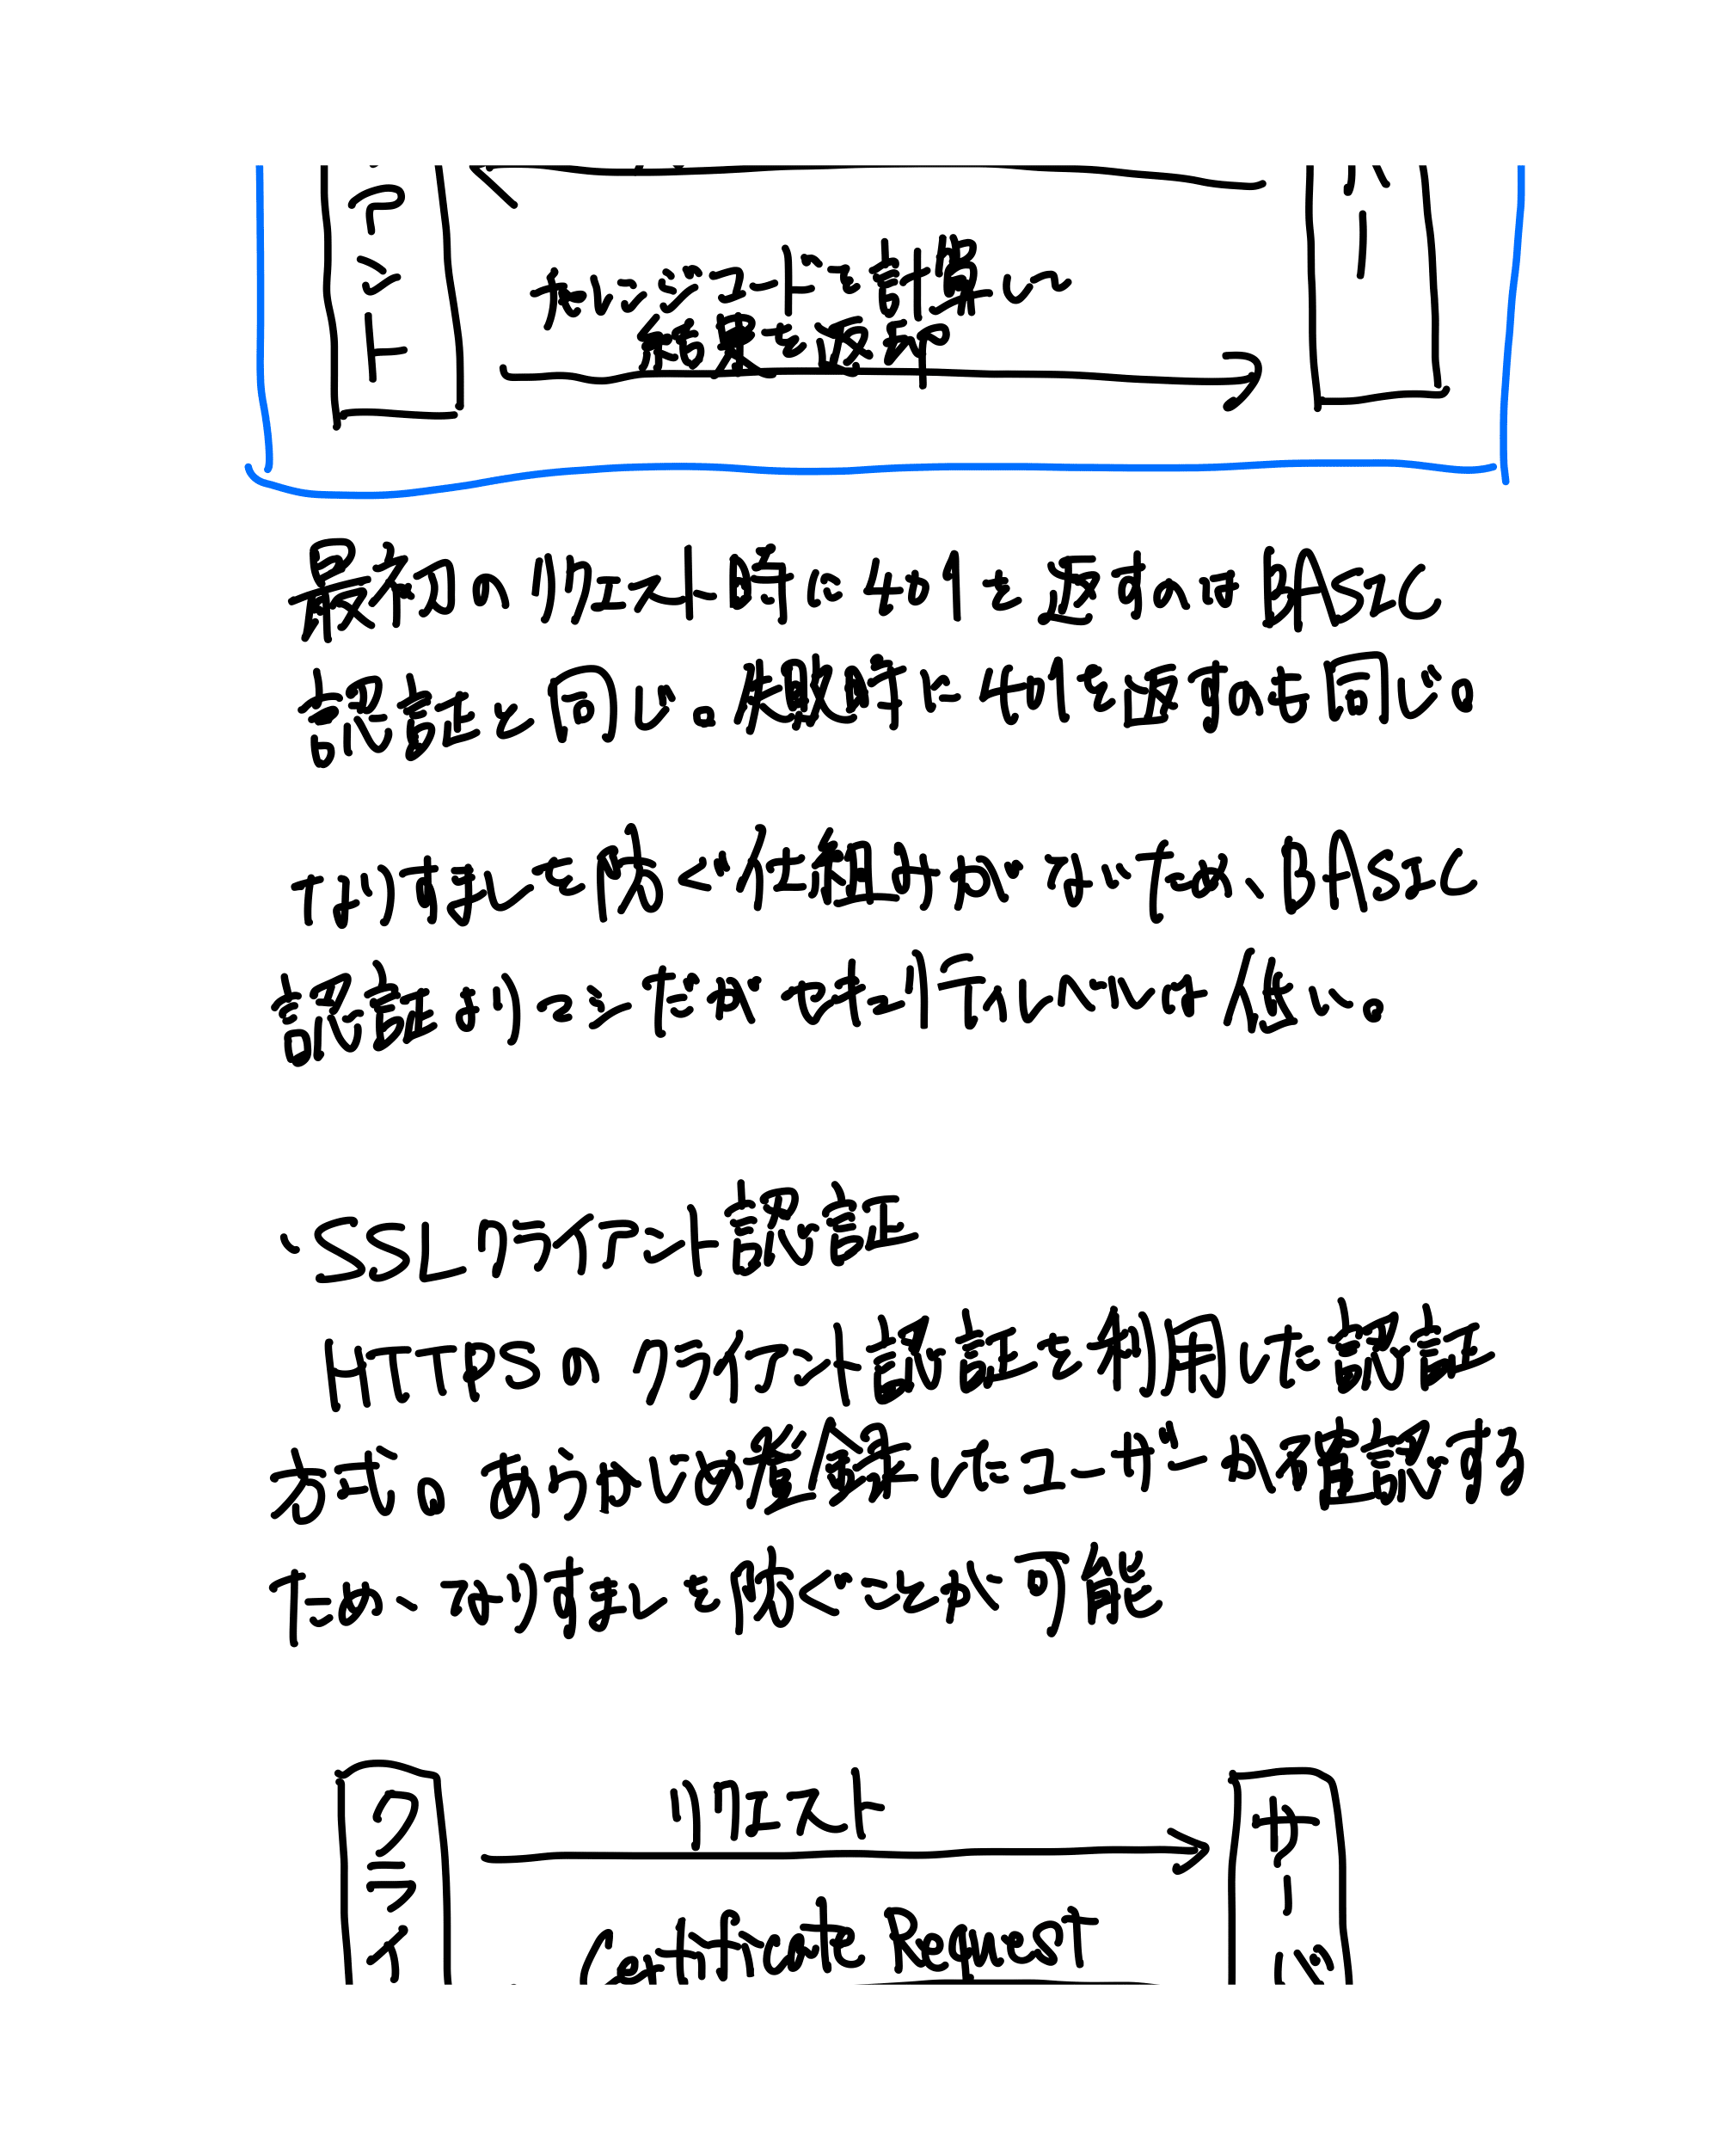 アント
バー
チャレンジコードを計算し
結果を返却
最初のリクエスト時に401を返すのはBASIC
認証と同じ。失敗時に401を返すのも同じ。
なりすましを防ぐ仕組みがないため、BASIC
認証よりことながセキュリティレベルは低い。
・SSLクライアント認証
HTTPSのクライアント認証を利用した認証
方式。あらかじめ登録したユーザーか確認する
ため、なりすましを防ぐことが可能
クライ
リクエスト
サーバ
Certificate Request